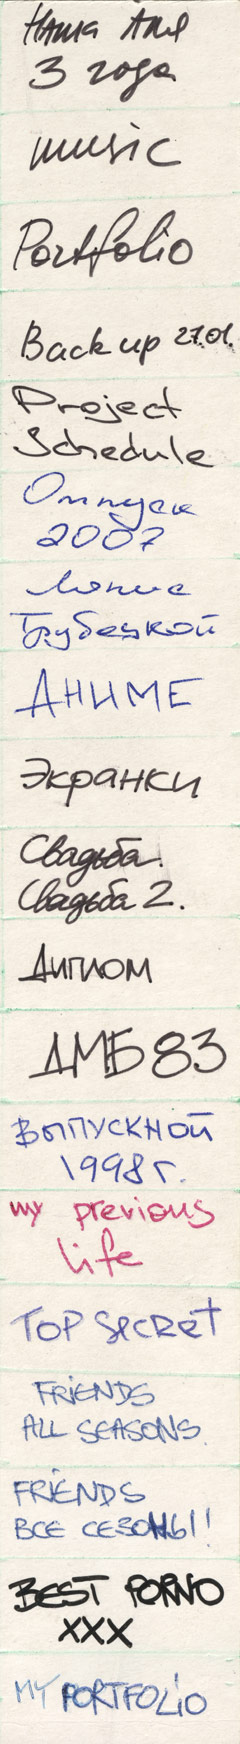 Наша Аля
3 года
music
Portfolio
Back up 27.01.
Project
Schedule
Отпуск
2007
Ляпис
Трубецкой
АНИМЕ
Экранки
Свадьба.
Свадьба 2.
Диплом
ДМБ 83
ВЫПУСКНОЙ
1998 г.
my previous
life
TOP SECRET
FRIENDS
ALL SEASONS
FRIENDS
ВСЕ СЕЗОНЫ!!
BEST PORNO
XXX
MY PORTFOLIO